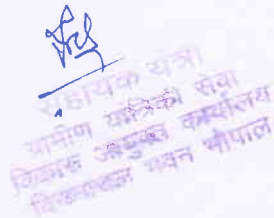 सहायक यंत्री
ग्रामीण यांत्रिकी सेवा
विकास आयुक्त कार्यालय
विन्ध्याचल भवन भोपाल